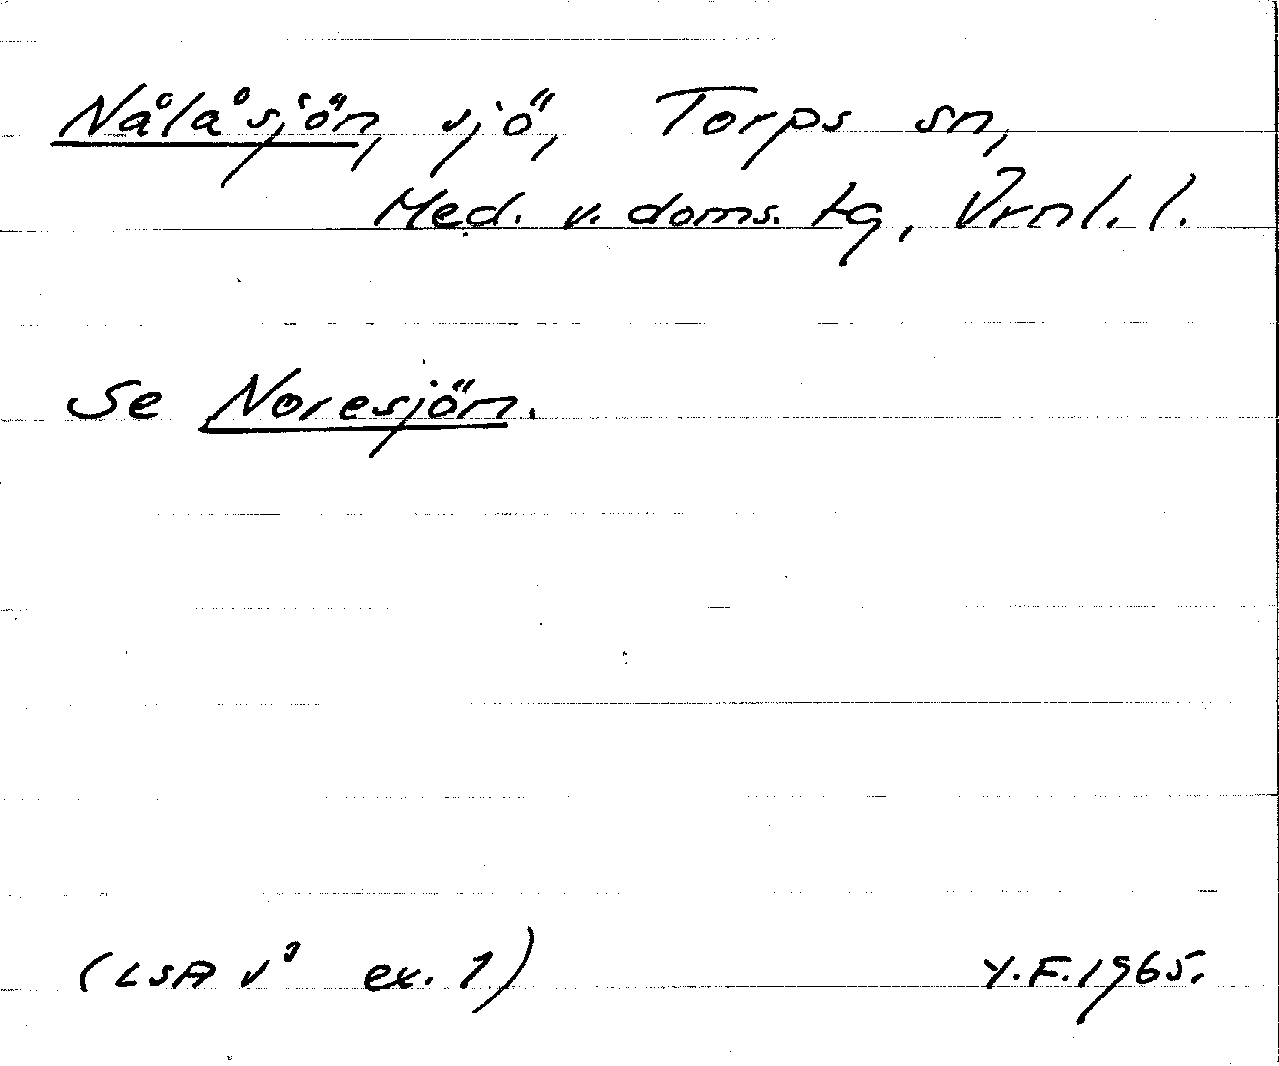 Nålåsjön, sjö, Torps sn,
Med. v. doms. tg, Vrml. l.
Se Noresjön.
(LSA ex. 1) Y.F. 1965.